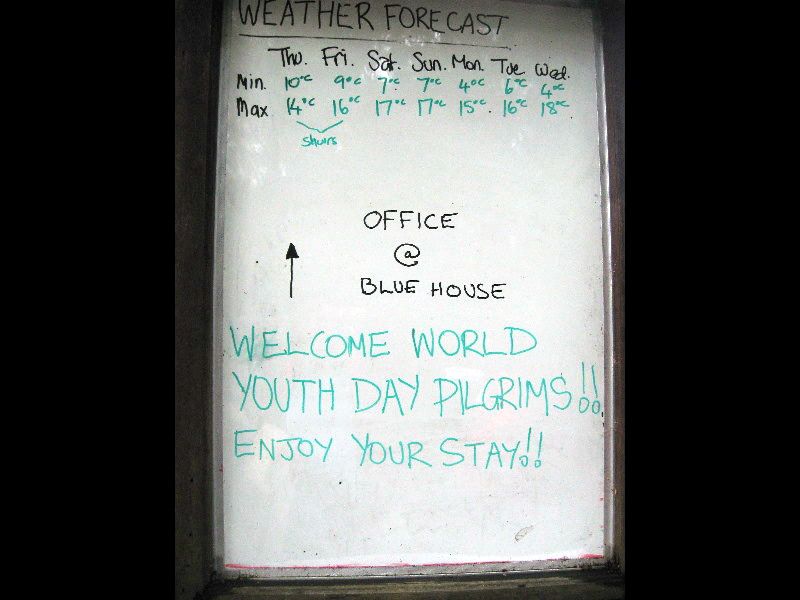 WEATHER FORECAST
Thu. Fri. Sat. Sun. Mon. Tue Wed.
Min. 10°C 9°C 7°C 7°C 4°C 6°C 4°C
Max 14°C 16°C 17°C 17°C 15°C. 16°C 18°C
OFFICE
@
BLUE HOUSE
WELCOME WORLD
YOUTH DAY PILGRIMS!!
ENJOY YOUR STAY!!